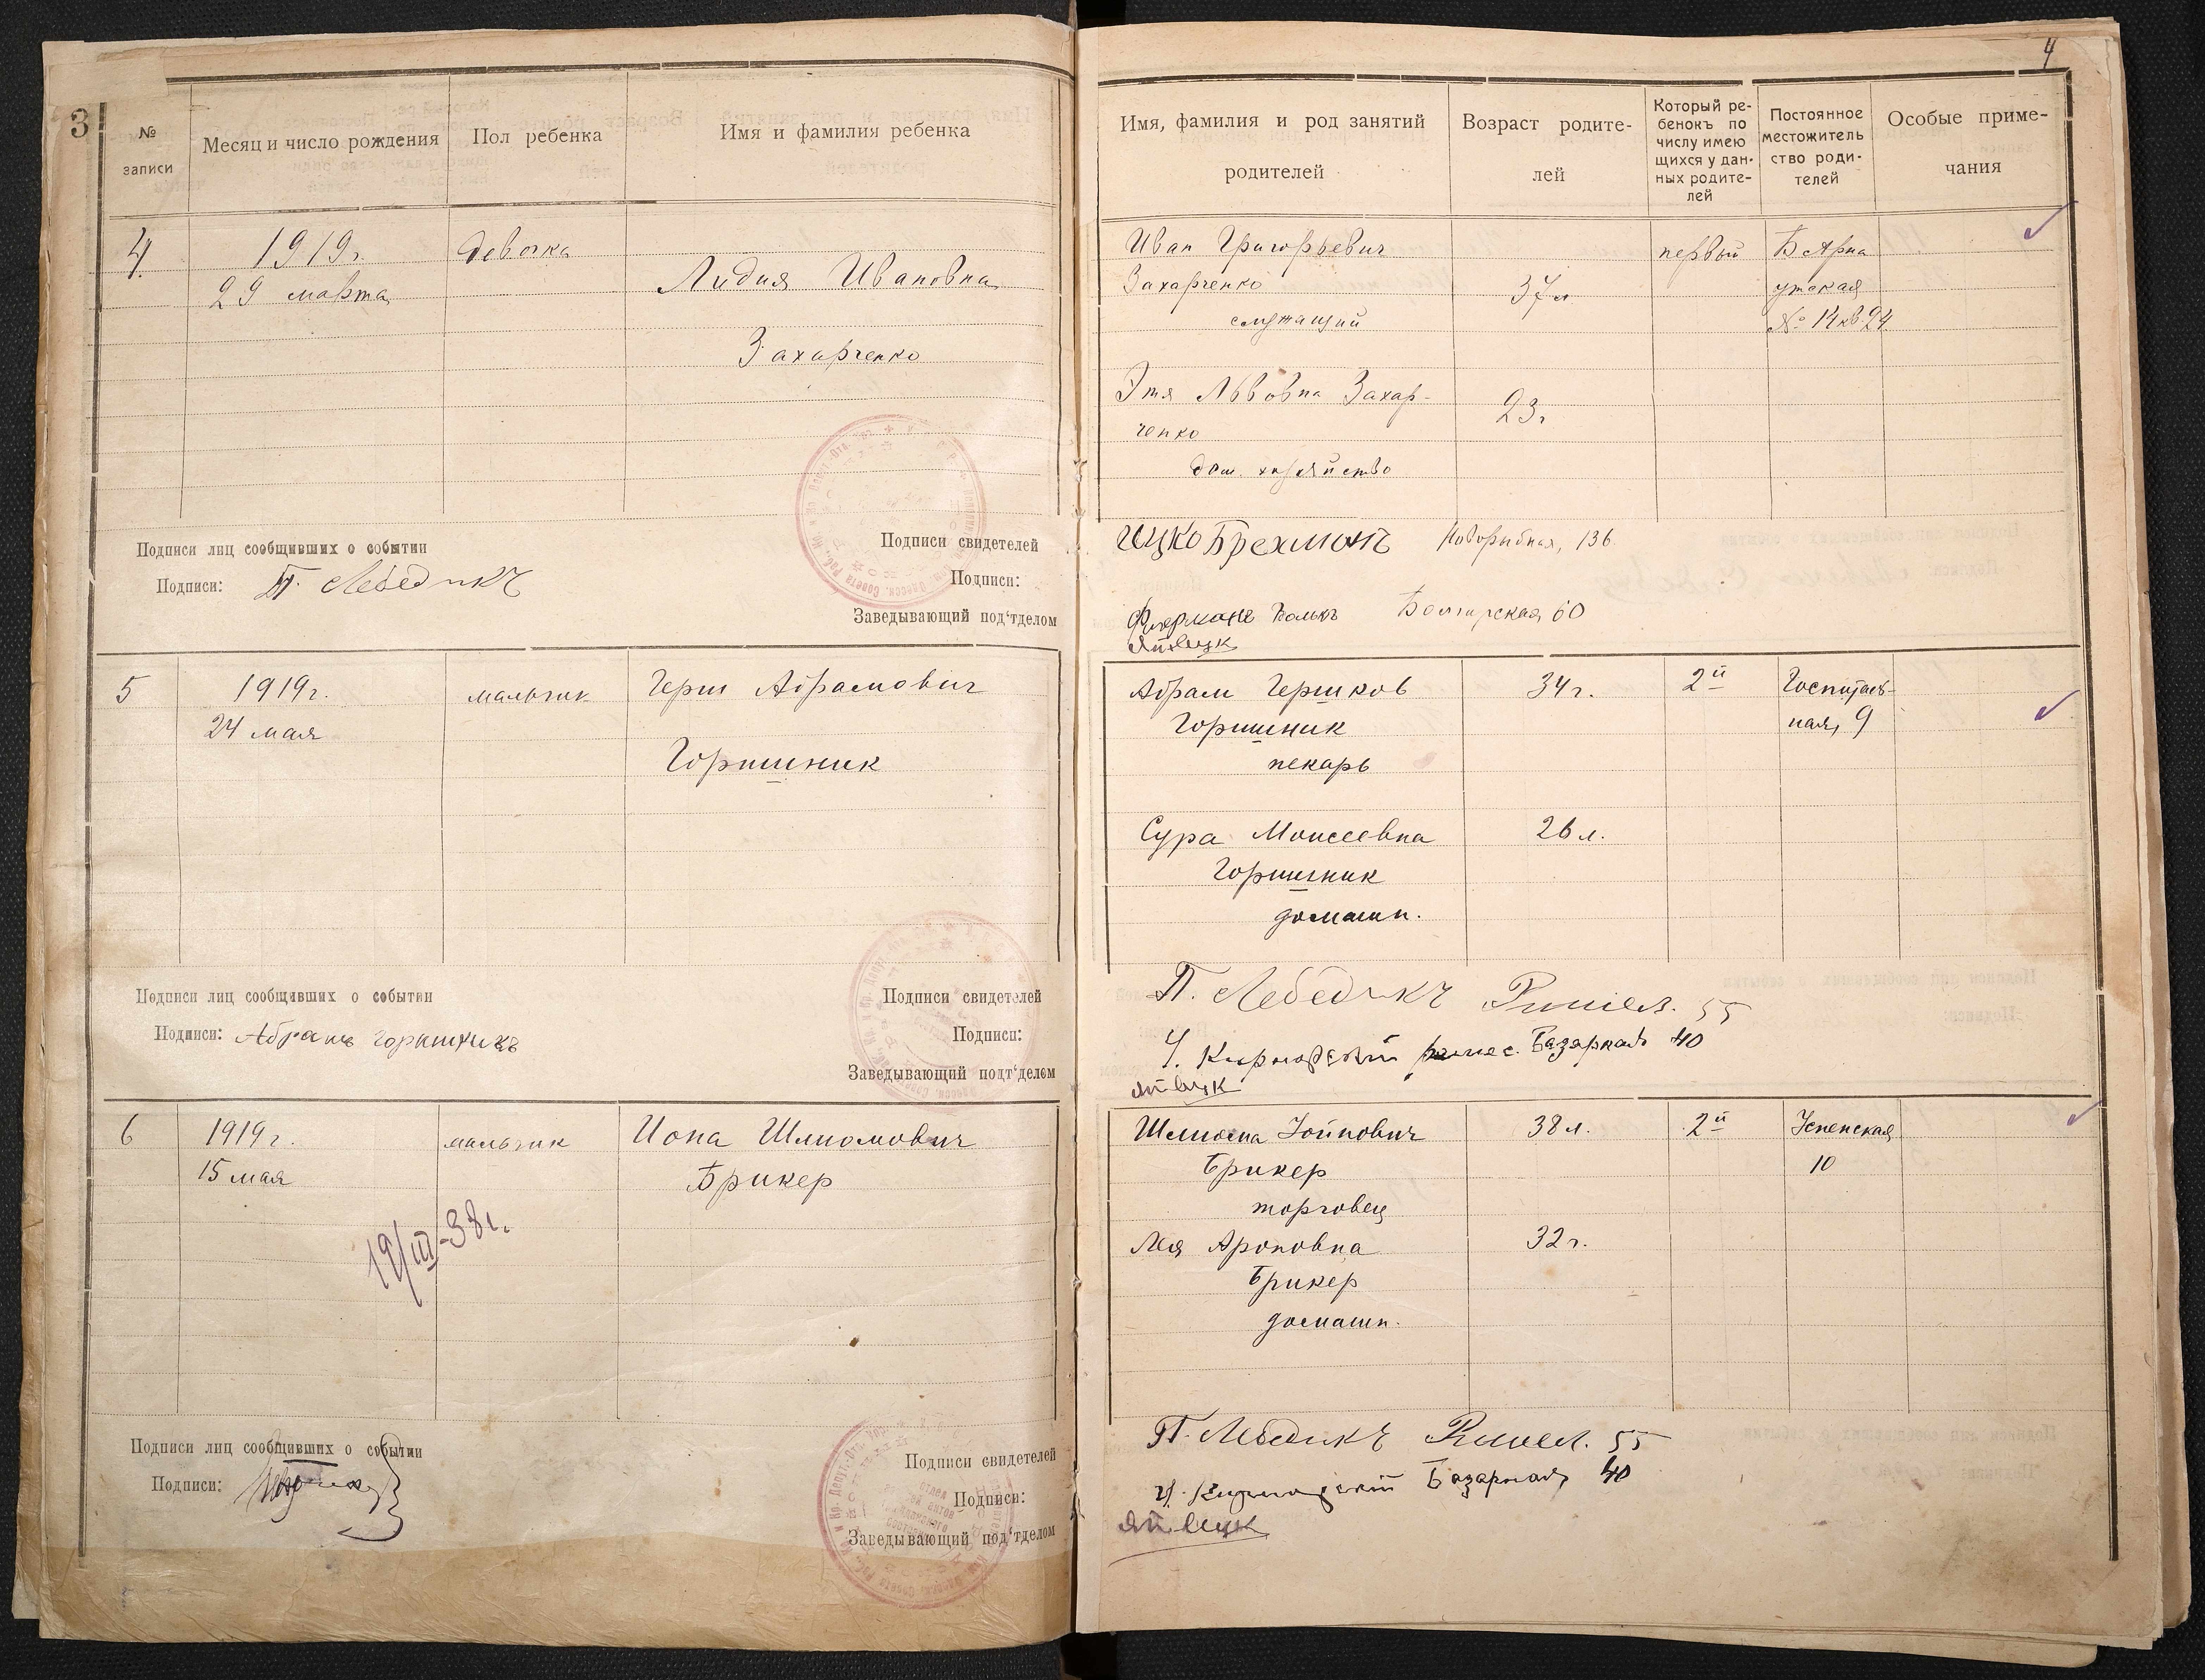 3
№
записи
Месяц и число рождения
Пол ребенка
Имя и фамилия ребенка
4.
1919г.
девочка
29 марта
Лидия Ивановна
Захарченко
Подписи лиц сообщивших о событии
Подписи: П. Лебедикъ
Подписи свидетелей
Подписи:
Заведывающий под'тделом
5
1919г.
мальчик
Герш Абрамович
24 мая
Горишник
Подписи лиц сообщивших о событии
Подписи: Абрамъ Горишникъ
Подписи свидетелей
Подписи:
Заведывающий подт'делом
6
1919г.
мальчик
Иона Шлиомович
15 мая
Брикер
19/III-38г.
Подписи лиц сообщивших о событии
Подписи:
Подписи свидетелей
Подписи:
Заведывающий под'тделом
4
Имя, фамилия и род занятий
родителей
Возраст родите-
лей
Который ре-
бенокъ по
числу имею
щихся у дан-
ных родите-
лей
Постоянное
местожитель
ство роди-
телей
Особые приме-
чания
Иван Григорьевич
Захарченко
служащий
37л
первый
Б Арна
утская
№ 14 кв 24
Этя Львовна Захар-
ченко
23г
дом. хозяйство
Ицко Брехманъ Новорыбная, 136
Болгарская 60
Абрам Гершков
34г.
2й
Госпиталь-
Горишник
ная, 9
пекарь
Сура Моисеевна
26л.
Горишник
домашн.
П. Лебедикъ Ришел. 55
Базарная 40
Шлиома Іойнович
38л.
2й
Успенская
Брикер
10
торговец
Лея Ароновна
32г.
Брикер
домашн.
П. Лебедикъ Ришел. 55
Базарная 40